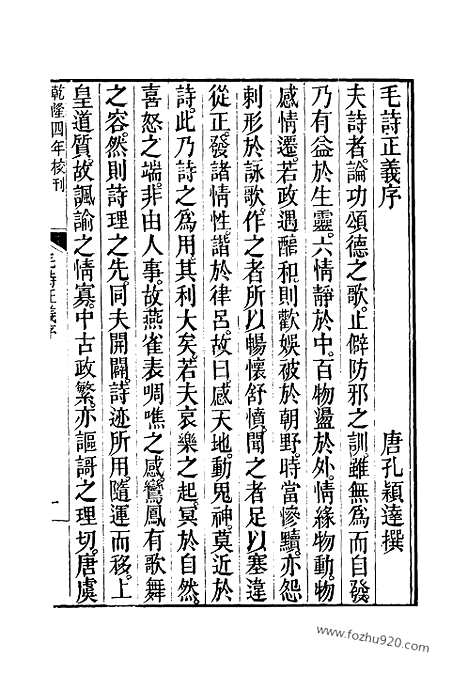 毛詩正義序
唐孔穎達撰
夫詩者論功頌德之歌止僻防邪之訓雖無為而自發
乃有益於生靈六情靜於中百物盪於外情緣物動物
感情遷若政遇醇和則歡娛被於朝野時當慘黷亦怨
刺形於詠歌作之者所以暢懷舒憤聞之者足以塞違
從正發諸情性諧於律呂故曰感天地動鬼神莫近於
詩此乃詩之為用其利大矣若夫哀樂之起冥於自然
喜怒之端非由人事故燕雀表啁噍之感鸞鳳有歌舞
之容然則詩理之先同夫開闢詩迹所用隨運而移上
皇道質故諷諭之情寡中古政繁亦謳謌之理切唐虞
乾隆四年校刊
毛詩正義序
一
www.fozhu920.com